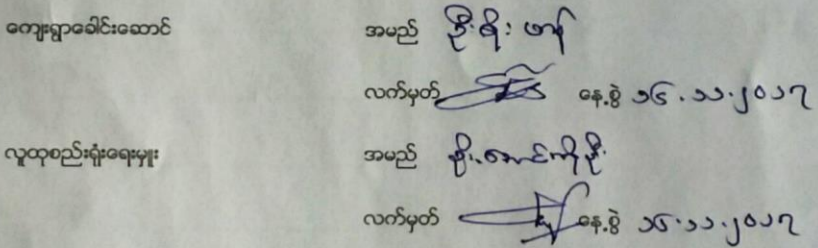 ကျေးရွာခေါင်းဆောင် အမည် ဦးစိုး ဖာန်
လက်မှတ် နေ့စွဲ ၁၆.၁၁.၂၀၁၇
လူထုစည်းရုံးရေးမှူး အမည် စိုးအောင်ကိုဦး
လက်မှတ် နေ့စွဲ ၁၆.၁၁.၂၀၁၇